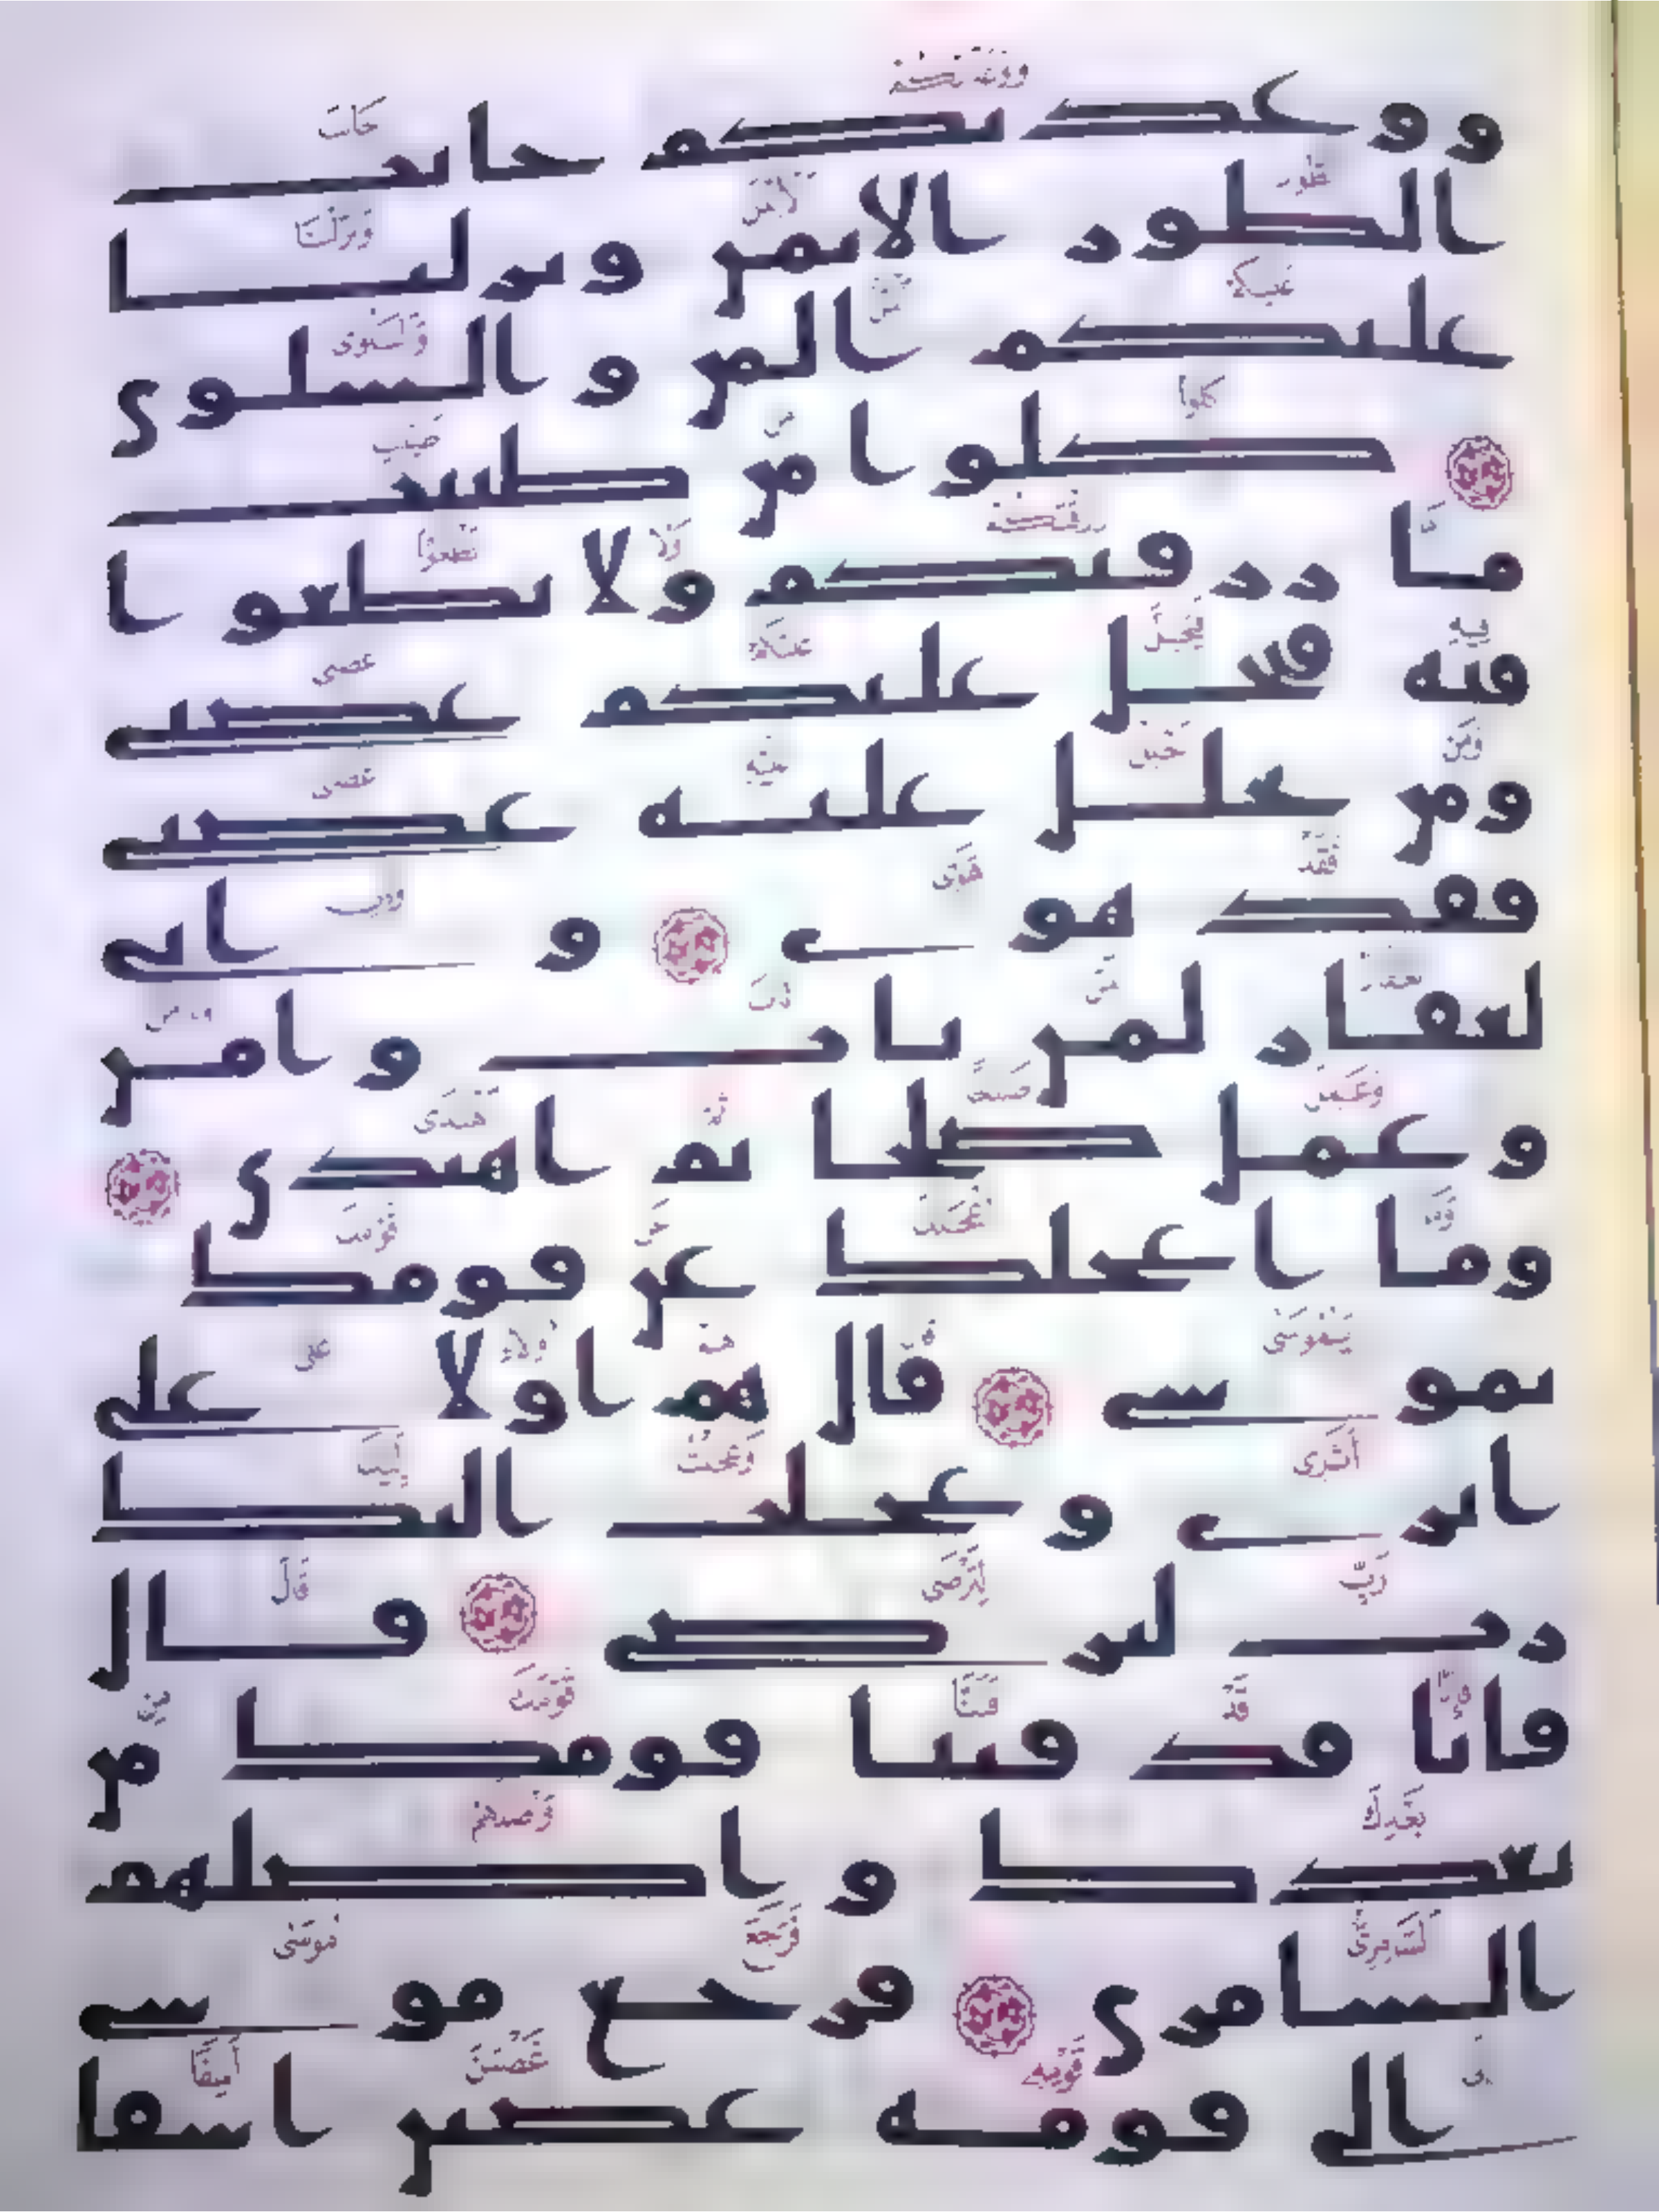 ووعدنكم جانب
الطور الايمن ونزلنا
عليكم المن والسلوى
كلوا من طيبت
ما رزقنكم ولا تطغوا
فيه فيحل عليكم غضبي
ومن يحلل عليه غضبي
فقد هوى واني
لغفار لمن تاب وامن
وعمل صلحا ثم اهتدى
وما اعجلك عن قومك
يموسى قال هم اولا على
اثرى وعجلت اليك
رب لترضى قال
فانا قد فتنا قومك من
بعدك واضلهم
السامرى فرجع موسى
الى قومه غضبن اسفا